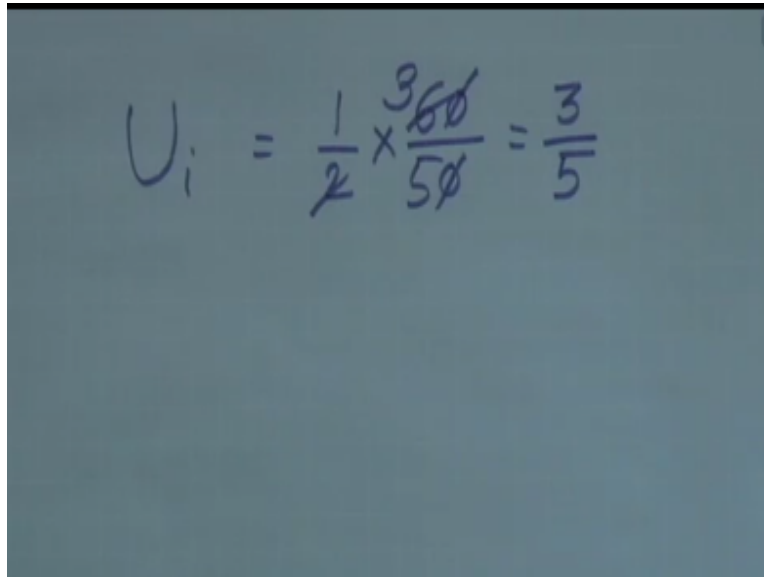 U_i = 1/2 × 60/50 = 3/5
3